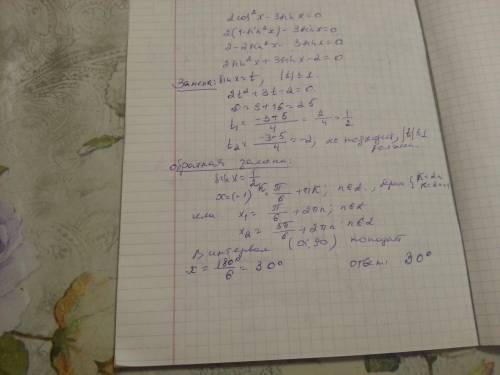 2cos²x - 3sinx = 0
2(1 - sin²x) - 3sinx = 0
2 - 2sin²x - 3sinx = 0
2sin²x + 3sinx - 2 = 0
Замена: sinx = t, |t| ≤ 1
2t² + 3t - 2 = 0
D = 9 + 16 = 25
t₁ = (-3+5)/4 = 2/4 = 1/2
t₂ = (-3-5)/4 = -2, не подходит, |t| ≤ 1
Обратная замена:
sinx = 1/2
x = (-1)ᴷ π/6 + πK; n∈Z, при { K=2n
или x₁ = π/6 + 2πn; n∈Z
x₂ = 5π/6 + 2πn n∈Z
В интервал (0; 90) попадает
x = 180°/6 = 30° ответ: 30°